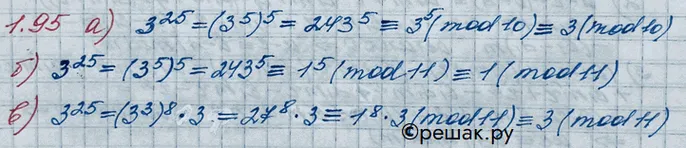 1.95 а) 3^25 = (3^5)^5 = 243^5 ≡ 3^5 (mod 10) ≡ 3 (mod 10)
б) 3^25 = (3^5)^5 = 243^5 ≡ 1^5 (mod 11) ≡ 1 (mod 11)
в) 3^25 = (3^3)^8 · 3 = 27^8 · 3 ≡ 1^8 · 3 (mod 11) ≡ 3 (mod 11)
©решак.ру